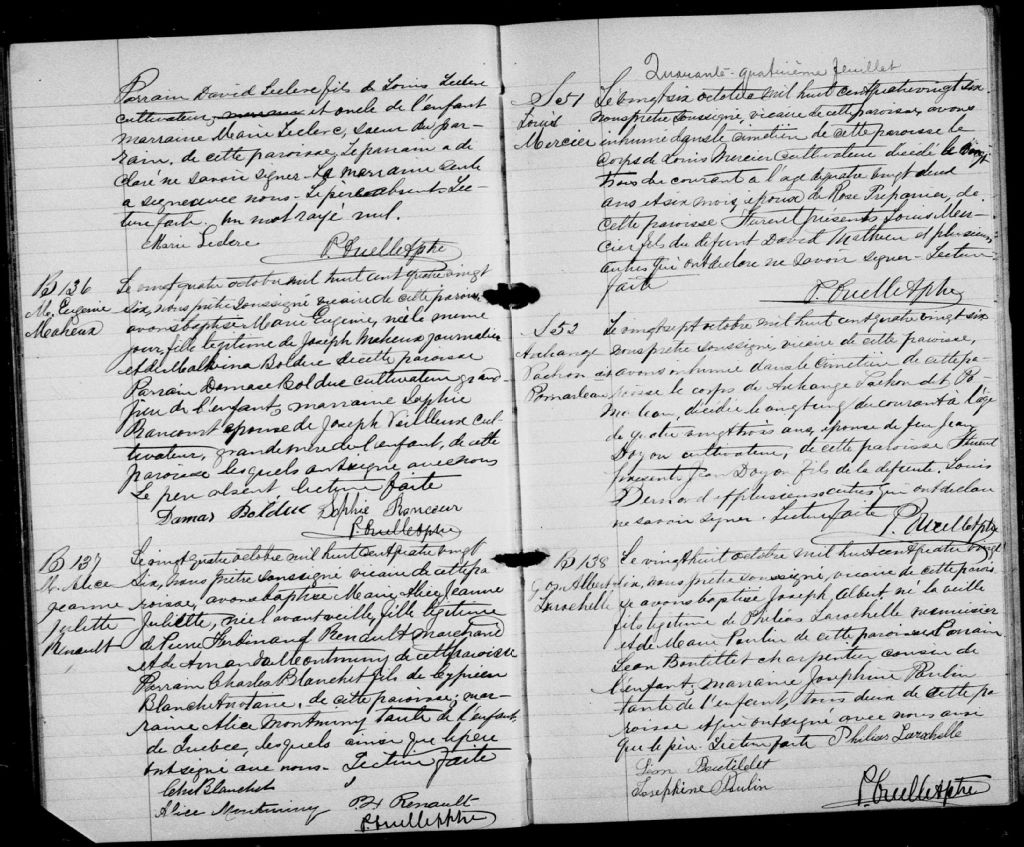 Parrain David Leclerc fils de Louis Leclerc
cultivateur et oncle de l'enfant
marraine Marie Leclerc, soeur du par-
rain, de cette paroisse, Le parrain a dé
claré ne savoir signer. La marraine seule
a signé avec nous. Le père absent. Lec-
ture faite. Un mot rayé nul.
Marie Leclerc
P. Ouellet Ptre
B 136
M. Eugenie
Maheux
Le vingt quatre octobre mil huit cent quatre vingt
six, nous prêtre soussigné vicaire de cette parois
avons baptisé Marie Eugenie, née le même
jour, fille légitime de Joseph Maheux journalier
et de Malvina Bolduc de cette paroisse
Parrain Damase Bolduc cultivateur grand-
père de l'enfant, marraine Sophie
Rancourt épouse de Joseph Veilleux cul-
tivateur, grandmère de l'enfant, de cette
paroisse lesquels ont signé avec nous
Le père absent Lecture faite
Damas Bolduc Sophie Rancour
P. Ouellet Ptre
B 137
M. Alice
Jeanne
Juliette
Renault
Le vingt quatre octobre mil huit cent quatre vingt
six, nous prêtre soussigné vicaire de cette pa
roisse, avons baptisé Marie Alice Jeanne
Juliette, née l'avant veille, fille légitime
de Pierre Ferdinand Renault marchand
et de Amanda Montminy de cette paroisse
Parrain Charles Blanchet fils de Cyprien
Blanchet notaire, de cette paroisse; mar-
raine Alice Montminy tante de l'enfant,
de Québec, lesquels ainsi que le père
ont signé avec nous. Lecture faite
Chs Blanchet
Alice Montminy P. F. Renault
P. Ouellet Ptre
Quarante-quatrième feuillet
S 51
Louis
Mercier
Le vingt six octobre mil huit cent quatre vingt six
nous prêtre soussigné, vicaire de cette paroisse, avons
inhumé dans le cimetière de cette paroisse le
corps de Louis Mercier cultivateur décédé le vingt
trois du courant à l'âge de quatre vingt deux
ans et six mois, époux de Rose Trepanier, de
cette paroisse Furent présents Louis Mer-
cier fils du défunt David Mathieu et plusieurs
autres qui ont déclaré ne savoir signer - Lecture
faite
P. Ouellet Ptre
S 52
Archange
Vachon dit
Pomarleau
Le vingt sept octobre mil huit cent quatre vingt six
nous prêtre soussigné, vicaire de cette paroisse,
avons inhumé dans le cimetière de cette pa-
roisse le corps de Archange Vachon dit Po-
marleau, décédée le vingt cinq du courant à l'âge
de quatre vingt trois ans, épouse de feu Jean
Doyon cultivateur, de cette paroisse Furent
présents Jean Doyon fils de la défunte, Louis
Bernard et plusieurs autres qui ont déclaré
ne savoir signer. Lecture faite
P. Ouellet Ptre
B 138
J. Albert
Larochelle
Le vingt huit octobre mil huit cent quatre vingt
six, nous prêtre soussigné, vicaire de cette parois
se avons baptisé Joseph Albert né la veille
fils légitime de Philias Larochelle menuisier
et de Marie Poulin de cette paroisse Parrain
Léon Boutillet charpentier cousin de
l'enfant, marraine Josephine Poulin
tante de l'enfant, tous deux de cette pa
roisse et qui ont signé avec nous ainsi
que le père. Lecture faite Philias Larochelle
Léon Boutillet
Josephine Poulin
P. Ouellet Ptre